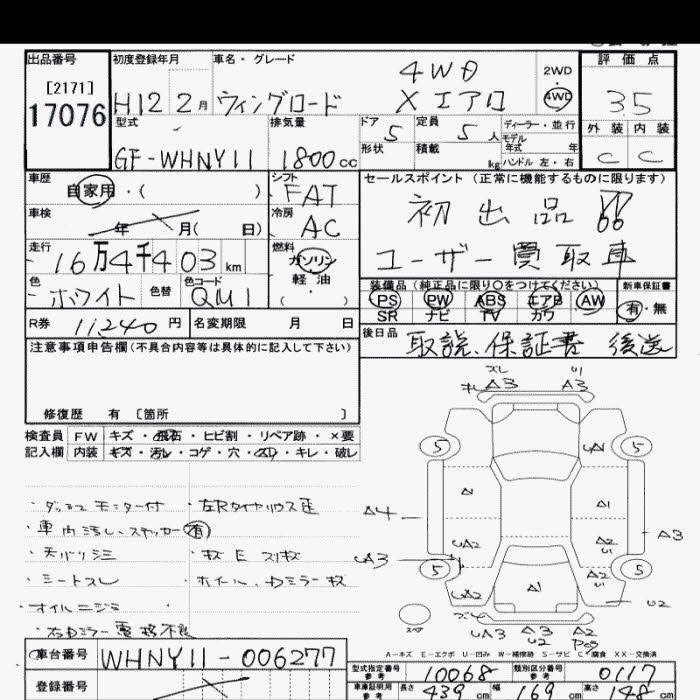 出品番号 初度登録年月 車名・グレード 評価点
[2171]
17076
H12 2月 ウィングロード 4WD Xエアロ 2WD 4WD 3.5
型式 排気量 ドア 定員 ディーラー・並行 外装 内装
GF-WHNY11 1800cc 5 5人 モデル年式 年 C C
形状 積載 kg ハンドル 左・右
車歴 シフト セールスポイント (正常に機能するものに限ります)
自家用・( ) FAT 初出品!!
車検 年 月( 日) 冷房 AC
走行 16万4千403km 燃料 ガソリン 軽油 ・( ) ユーザー買取車
色 ホワイト 色替 色コード QM1
装備品 (純正品に限り○をつけてください) 新車保証書
PS PW ABS エアB AW 有・無
SR ナビ TV カワ
R券 11240円 名変期限 月 日
後日品 取説、保証書 後送
注意事項申告欄(不具合内容等は具体的に記入して下さい)
修復歴 有 [箇所 ]
検査員 FW キズ・飛石・ヒビ割・リペア跡・×要
記入欄 内装 キズ・汚れ・コゲ・穴・スレ・キレ・破レ
A3 A3
5 5
A4 A3
5 5
・車内汚レ、ステッカー有
・シートスレ
・オイルニジミ
・右Dミラー電格不良
A3 A3
U2
A-キズ E-エクボ U-凹み W-補修跡 S-サビ C-腐食 XX-交換済
車台番号 WHNY11-006277
型式指定番号 参考 10068 類別区分番号 参考 0117
登録番号
車庫証明用 参考 長さ 439cm 幅 169cm 高さ 148cm